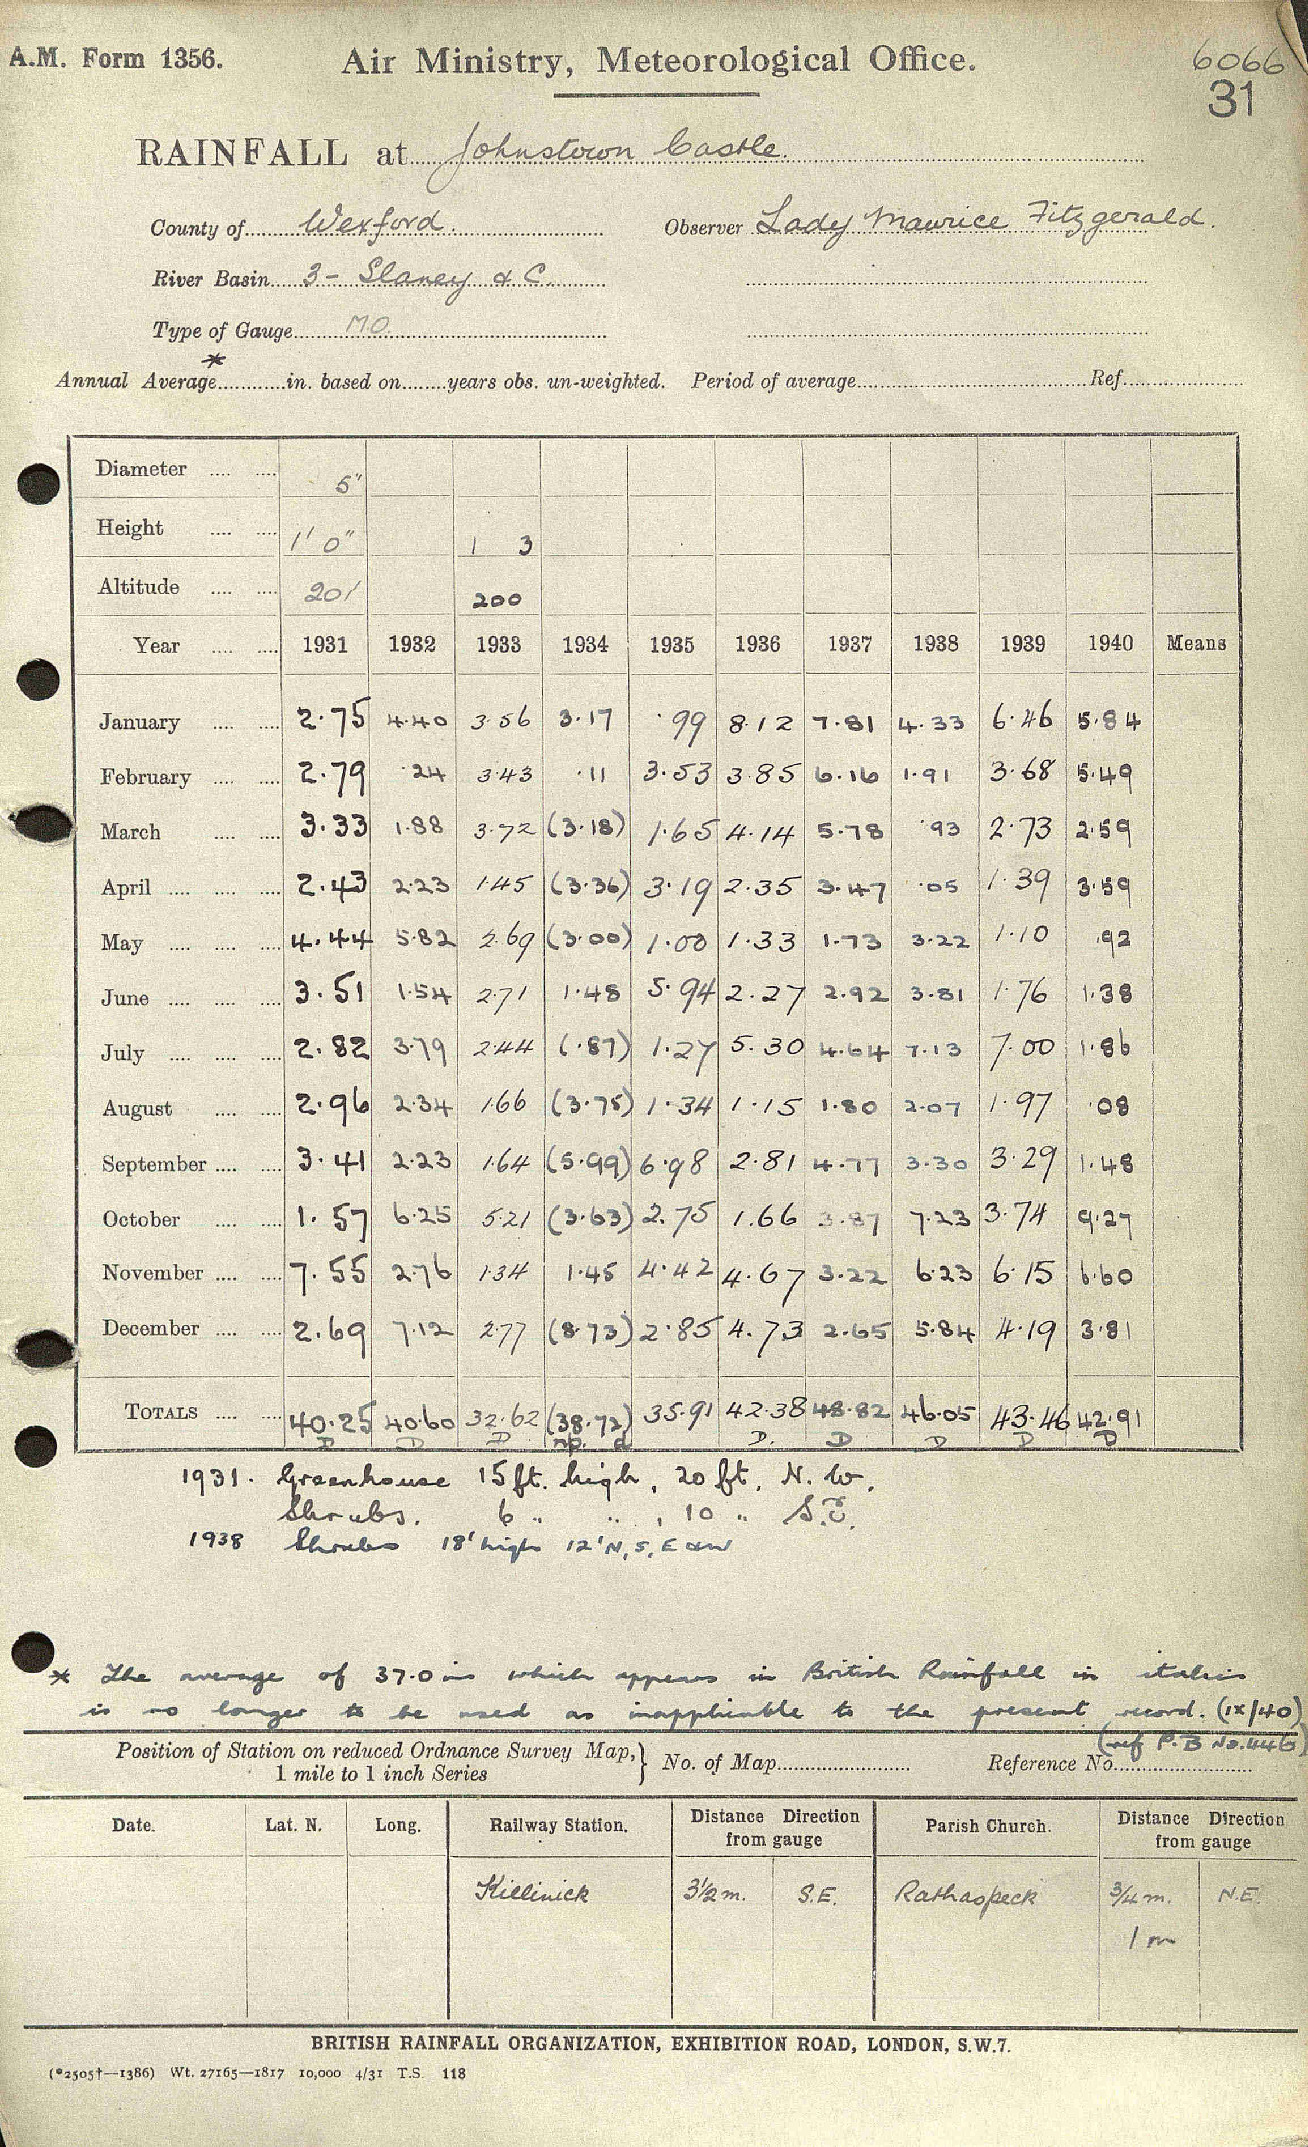 A.M. Form 1356. Air Ministry, Meteorological Office. 6066
31
RAINFALL at Johnstown Castle.
County of Wexford. Observer Lady Maurice Fitzgerald.
River Basin 3 - Slaney & C.
Type of Gauge M.O.
Annual Average* in. based on years obs. un-weighted. Period of average Ref.
Diameter 5"
Height 1' 0" 1 3
Altitude 201 200
Year 1931 1932 1933 1934 1935 1936 1937 1938 1939 1940 Means
January 2.75 4.40 3.56 3.17 .99 8.12 7.81 4.33 6.46 5.84
February 2.79 .24 3.43 .11 3.53 3.85 6.16 1.91 3.68 5.49
March 3.33 1.88 3.72 (3.18) 1.65 4.14 5.78 .93 2.73 2.59
April 2.43 2.23 1.45 (3.36) 3.19 2.35 3.47 .05 1.39 3.59
May 4.44 5.82 2.69 (3.00) 1.00 1.33 1.73 3.22 1.10 .92
June 3.51 1.54 2.71 1.48 5.94 2.27 2.92 3.81 1.76 1.38
July 2.82 3.79 2.44 (.87) 1.27 5.30 4.64 7.13 7.00 1.86
August 2.96 2.34 1.66 (3.75) 1.34 1.15 1.80 2.07 1.97 .08
September 3.41 2.23 1.64 (5.99) 6.98 2.81 4.77 3.30 3.29 1.48
October 1.57 6.25 5.21 (3.63) 2.75 1.66 3.87 7.23 3.74 9.27
November 7.55 2.76 1.34 1.45 4.42 4.67 3.22 6.23 6.15 6.60
December 2.69 7.12 2.77 (8.73) 2.85 4.73 2.65 5.84 4.19 3.81
TOTALS 40.25 40.60 32.62 (38.72) 35.91 42.38 48.82 46.05 43.46 42.91
D D D np. d D. D D D D
1931. Greenhouse 15 ft. high, 20 ft. N.W.
Shrubs. 6 " " , 10 " S.E.
1938 Shrubs 18' high 12' N, S, E & W
* The average of 37.0 in which appears in British Rainfall in italics
is no longer to be used as inapplicable to the present record. (IX/40)
(ref P.B No.446)
Position of Station on reduced Ordnance Survey Map, 1 mile to 1 inch Series } No. of Map Reference No.
Date. Lat. N. Long. Railway Station. Distance Direction from gauge Parish Church. Distance Direction from gauge
Killinick 3½ m. S.E. Rathaspeck ¾ m. N.E.
1 m
BRITISH RAINFALL ORGANIZATION, EXHIBITION ROAD, LONDON, S.W.7.
(*2505†—1386) Wt. 27165—1817 10,000 4/31 T.S. 118